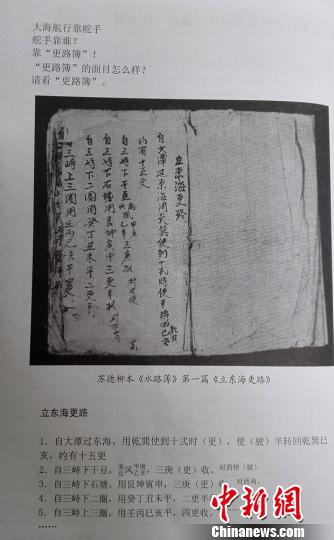 大海航行靠舵手
舵手靠谁？
靠“更路簿”！
“更路簿”的面目怎么样？
请看“更路簿”。
立東海更路
自大潭过東海用乾巽使到十弍時使半轉回乾巽巳亥
約有十五更
自三峙下石塘用艮坤寅申三更半收
自三峙下二圈用癸丁丑未平二更半
自三峙上三圈用壬丙巳亥平四更
苏德柳本《水路簿》第一篇《立东海更路》
立东海更路
1．自大潭过东海，用乾巽使到十弍时（更），使（驶）半转回乾巽巳
亥，约有十五更
2．自三峙下干豆，南风甲庚 北风乙辛，三庚（更）收，对西使（驶）
3．自三峙下石塘，用艮坤寅申，三庚（更）收，对西南。
4．自三峙下二圈，用癸丁丑未平，二更半
5．自三峙上三圈，用壬丙巳亥平，四更收，
……
中新网